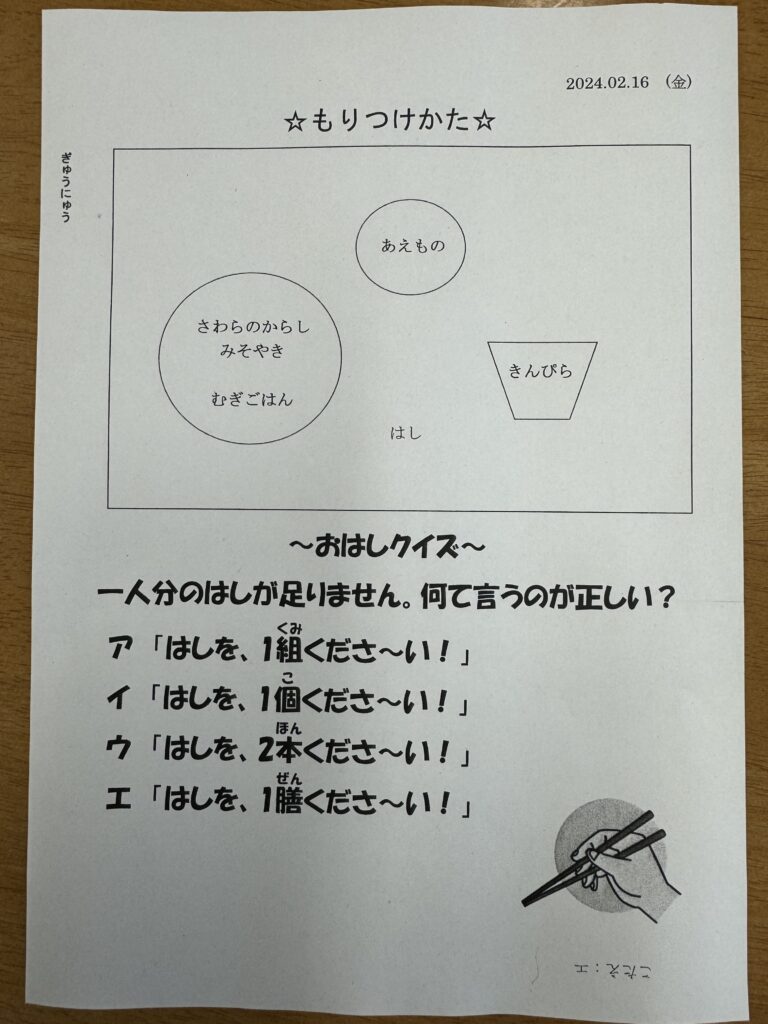 2024.02.16 (金)
☆もりつけかた☆
ぎゅうにゅう
あえもの
さわらのからし
みそやき
むぎごはん
きんぴら
はし
～おはしクイズ～
一人分のはしが足りません。何て言うのが正しい？
ア「はしを、1組くださ～い！」
くみ
イ「はしを、1個くださ～い！」
こ
ウ「はしを、2本くださ～い！」
ほん
エ「はしを、1膳くださ～い！」
ぜん
こたえ：エ